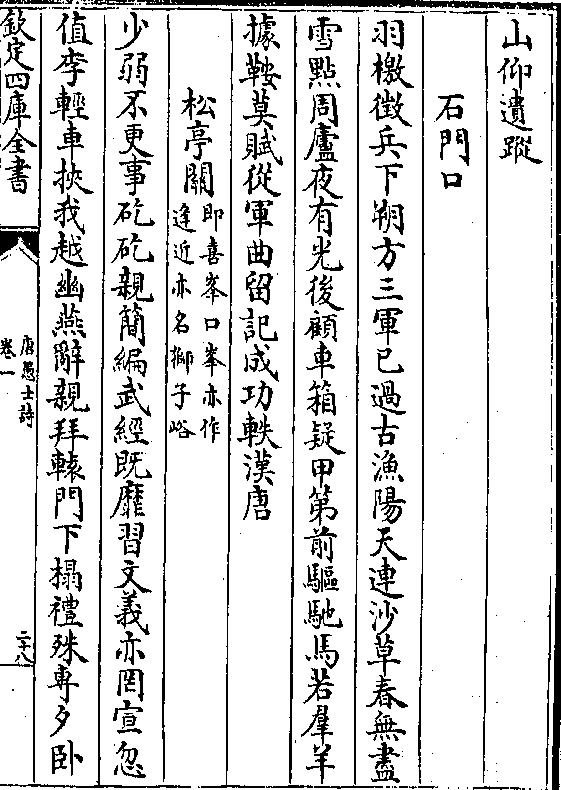 山仰遺蹤
石門口
羽檄徵兵下朔方三軍已過古漁陽天連沙草春無盡
雪點周廬夜有光後顧車箱疑甲第前驅馳馬若羣羊
據鞍莫賦從軍曲留記成功軼漢唐
松亭關即喜峯口峯亦作
逢近亦名獅子峪
少弱不更事矻矻親簡編武經既靡習文義亦罔宣忽
值李輕車挾我越幽燕辭親拜轅門下搨禮殊專夕卧
欽定四庫全書
唐愚士詩
卷一
二十八